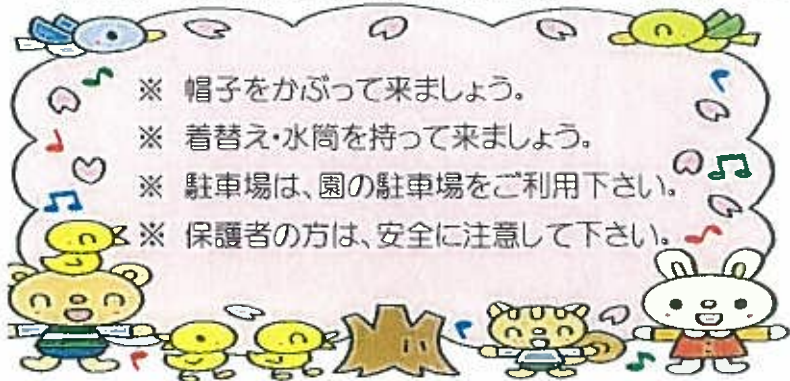 ※ 帽子をかぶって来ましょう。
※ 着替え・水筒を持って来ましょう。
※ 駐車場は、園の駐車場をご利用下さい。
※ 保護者の方は、安全に注意して下さい。